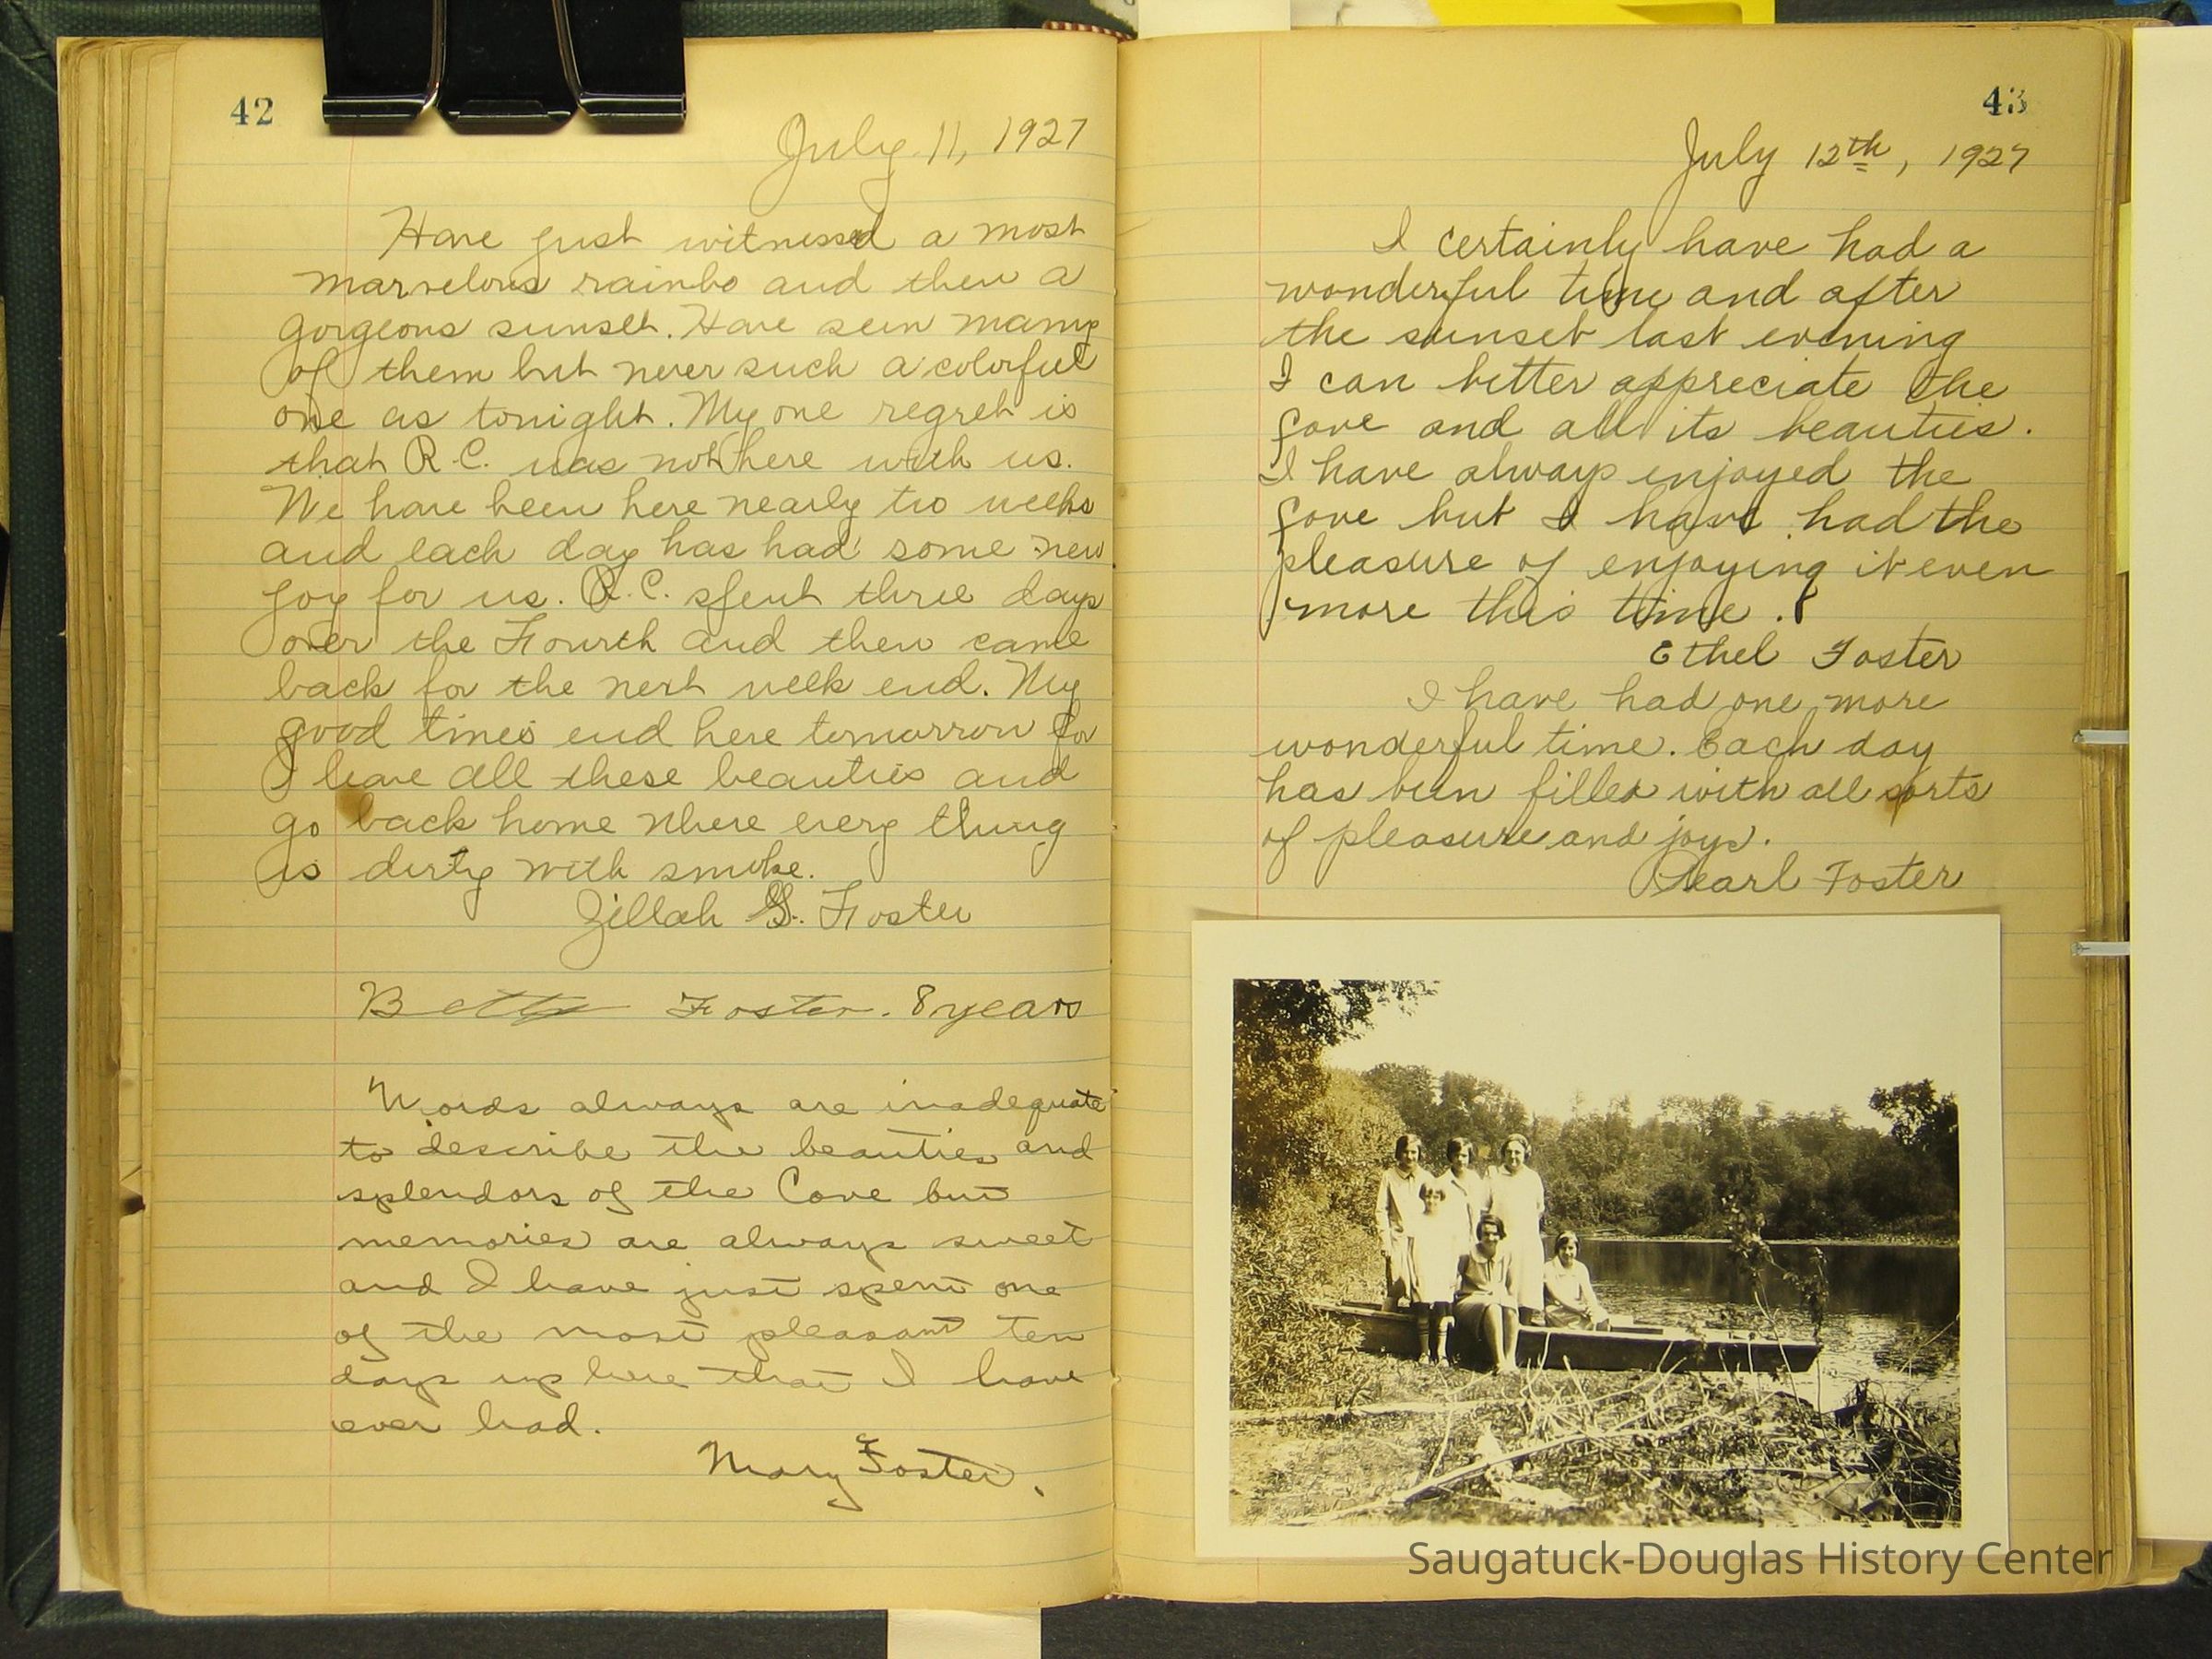 42
July 11, 1927
Have just witnessed a most
marvelous rainbo and then a
gorgeous sunset. Have seen many
of them but never such a colorful
one as tonight. My one regret is
that R.C. was not here with us.
We have been here nearly two weeks
and each day has had some new
joy for us. R.C. spent three days
over the Fourth and then came
back for the next week end. My
good times end here tomorrow for
I leave all these beauties and
go back home where every thing
is dirty with smoke.
Zillah G. Foster
Betty Foster. 8 years
Words always are inadequate
to describe the beauties and
splendors of the Cove but
memories are always sweet
and I have just spent one
of the most pleasant ten
days up here that I have
ever had.
Mary Foster.
43
July 12th, 1927
I certainly have had a
wonderful time and after
the sunset last evening
I can better appreciate the
Cove and all its beauties.
I have always enjoyed the
Cove but I have had the
pleasure of enjoying it even
more this time.
Ethel Foster
I have had one more
wonderful time. Each day
has been filled with all sorts
of pleasure and joys.
Pearl Foster
Saugatuck-Douglas History Center